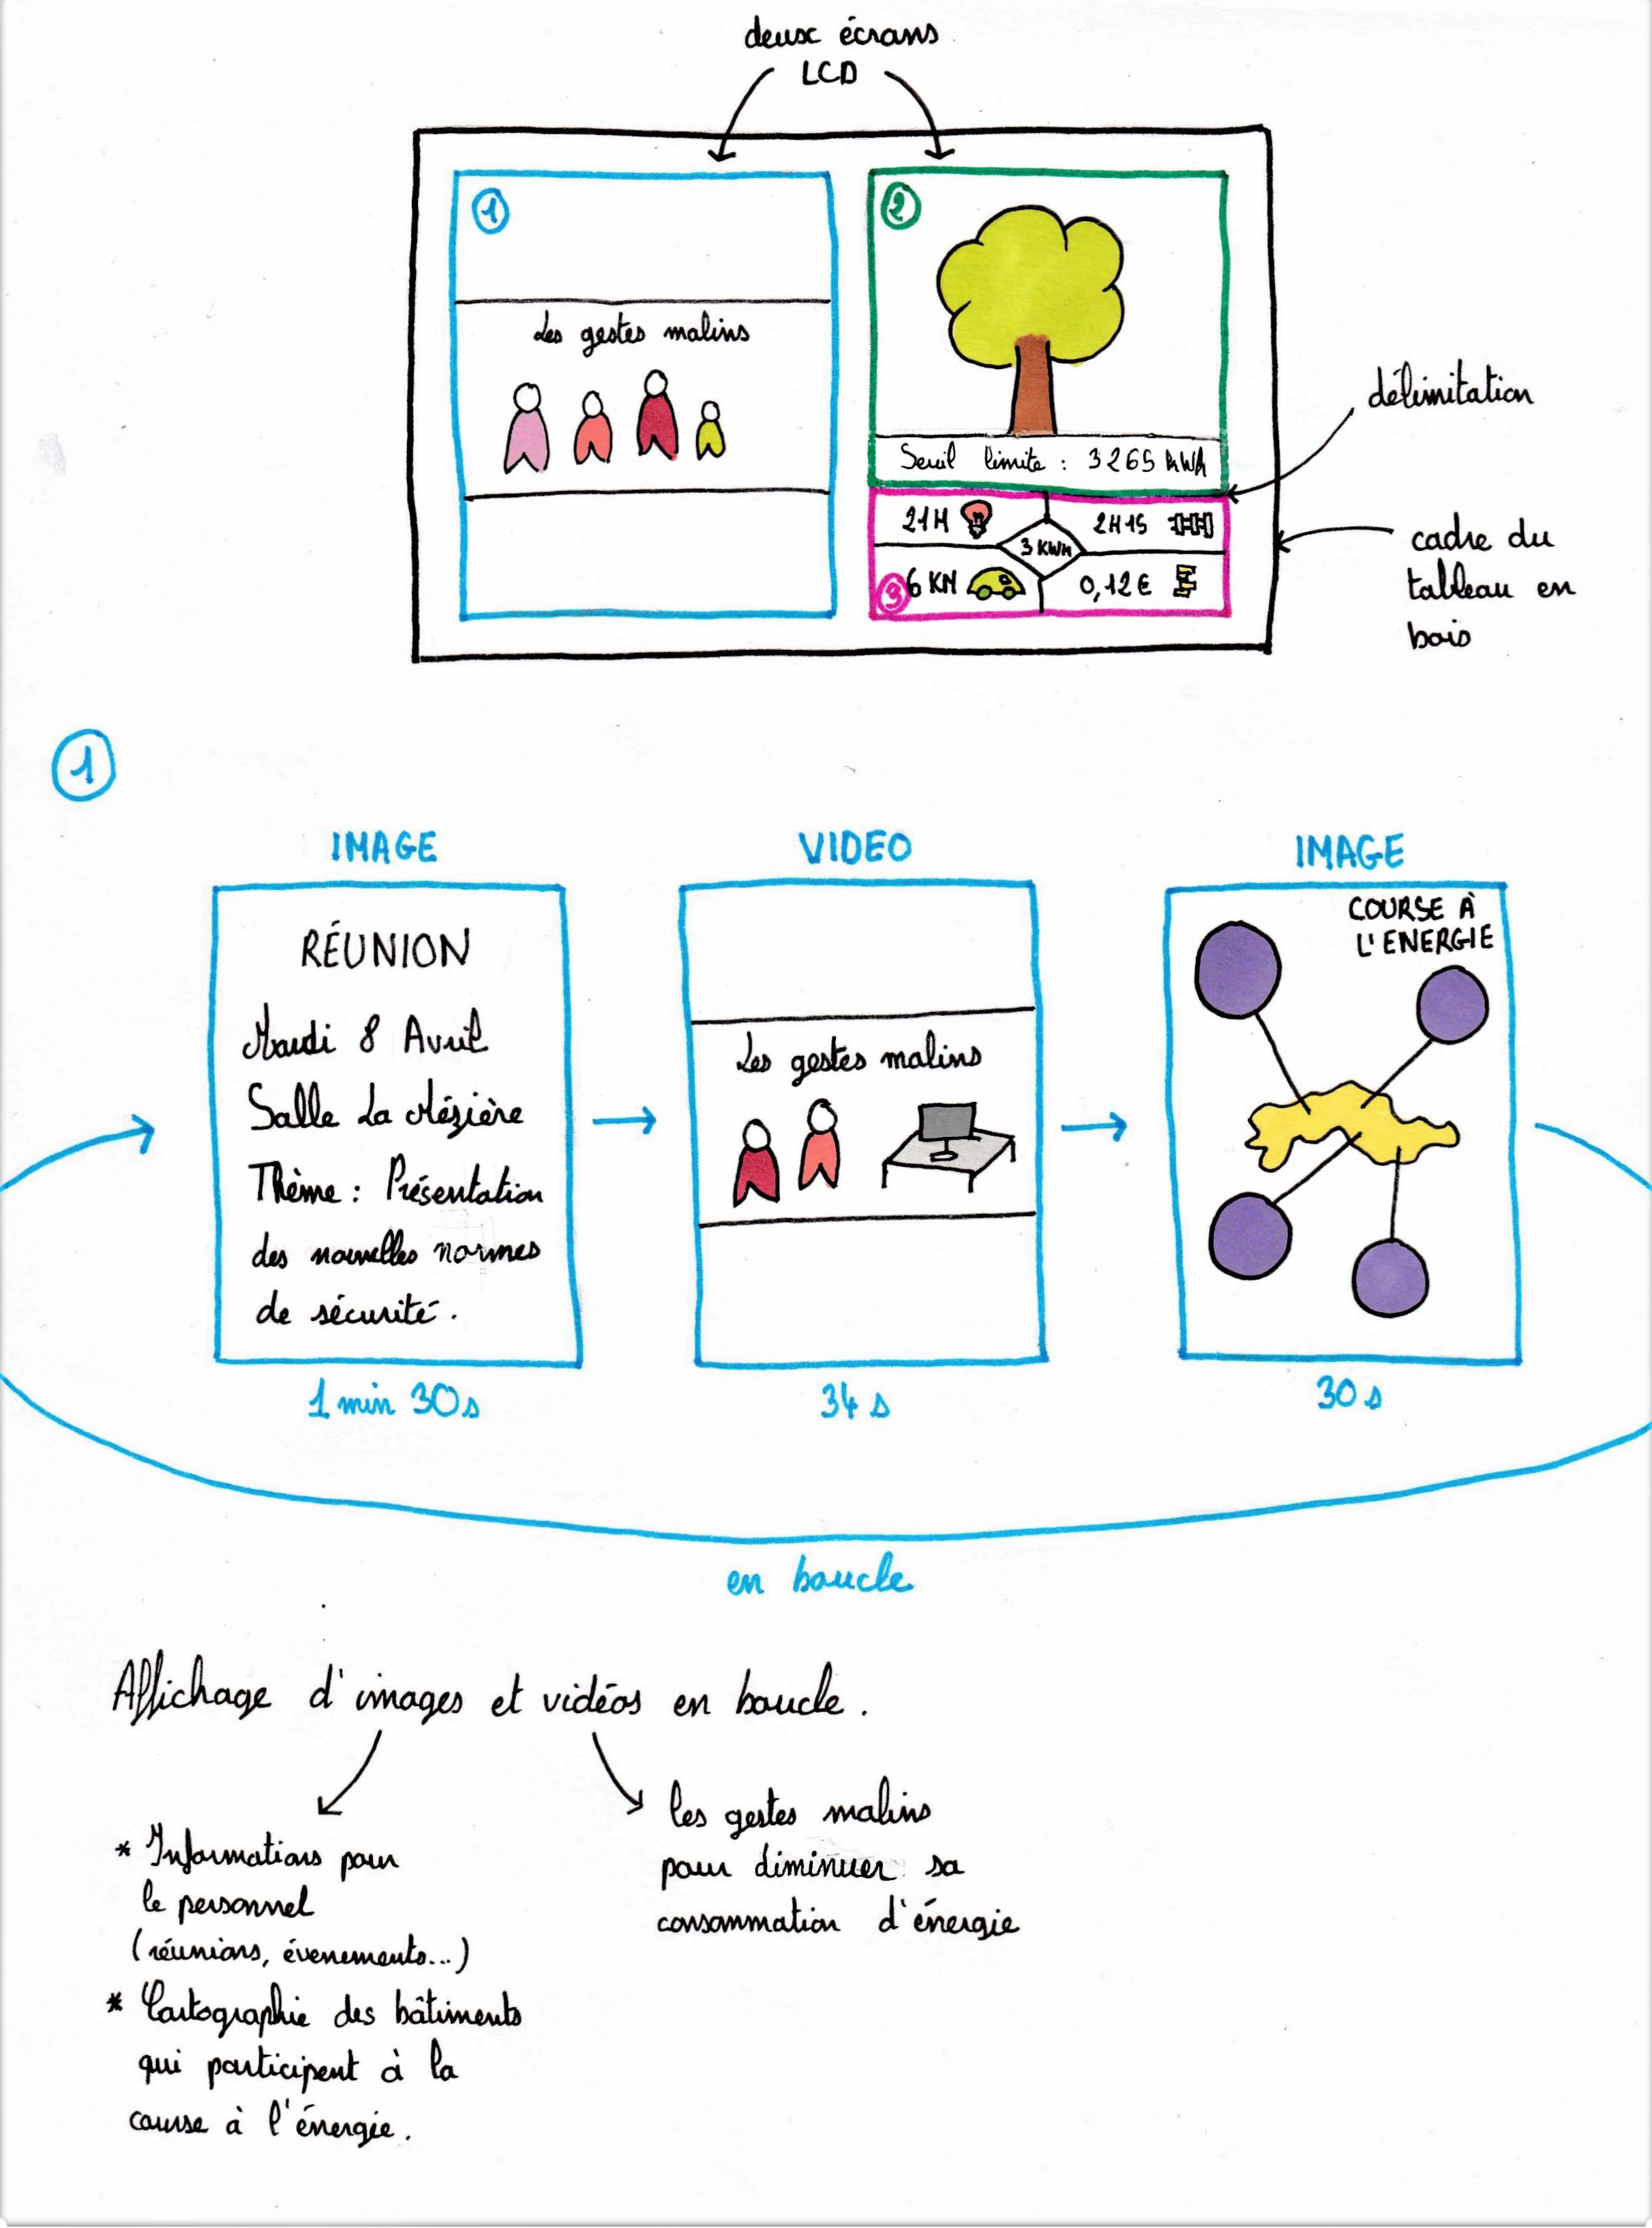 deux écrans
LCD
1
Les gestes malins
2
Seuil limite : 3265 kWh
21H
2H15
3 KWH
3
6 KM
0,12€
délimitation
cadre du
tableau en
bois
1
IMAGE
RÉUNION
Mardi 8 Avril
Salle La Mézière
Thème : Présentation
des nouvelles normes
de sécurité.
1 min 30s
VIDEO
Les gestes malins
34 s
IMAGE
COURSE À
L'ENERGIE
30 s
en boucle
Affichage d'images et vidéos en boucle.
* Informations pour
le personnel
(réunions, évenements...)
* Cartographie des bâtiments
qui participent à la
course à l'énergie.
les gestes malins
pour diminuer sa
consommation d'énergie